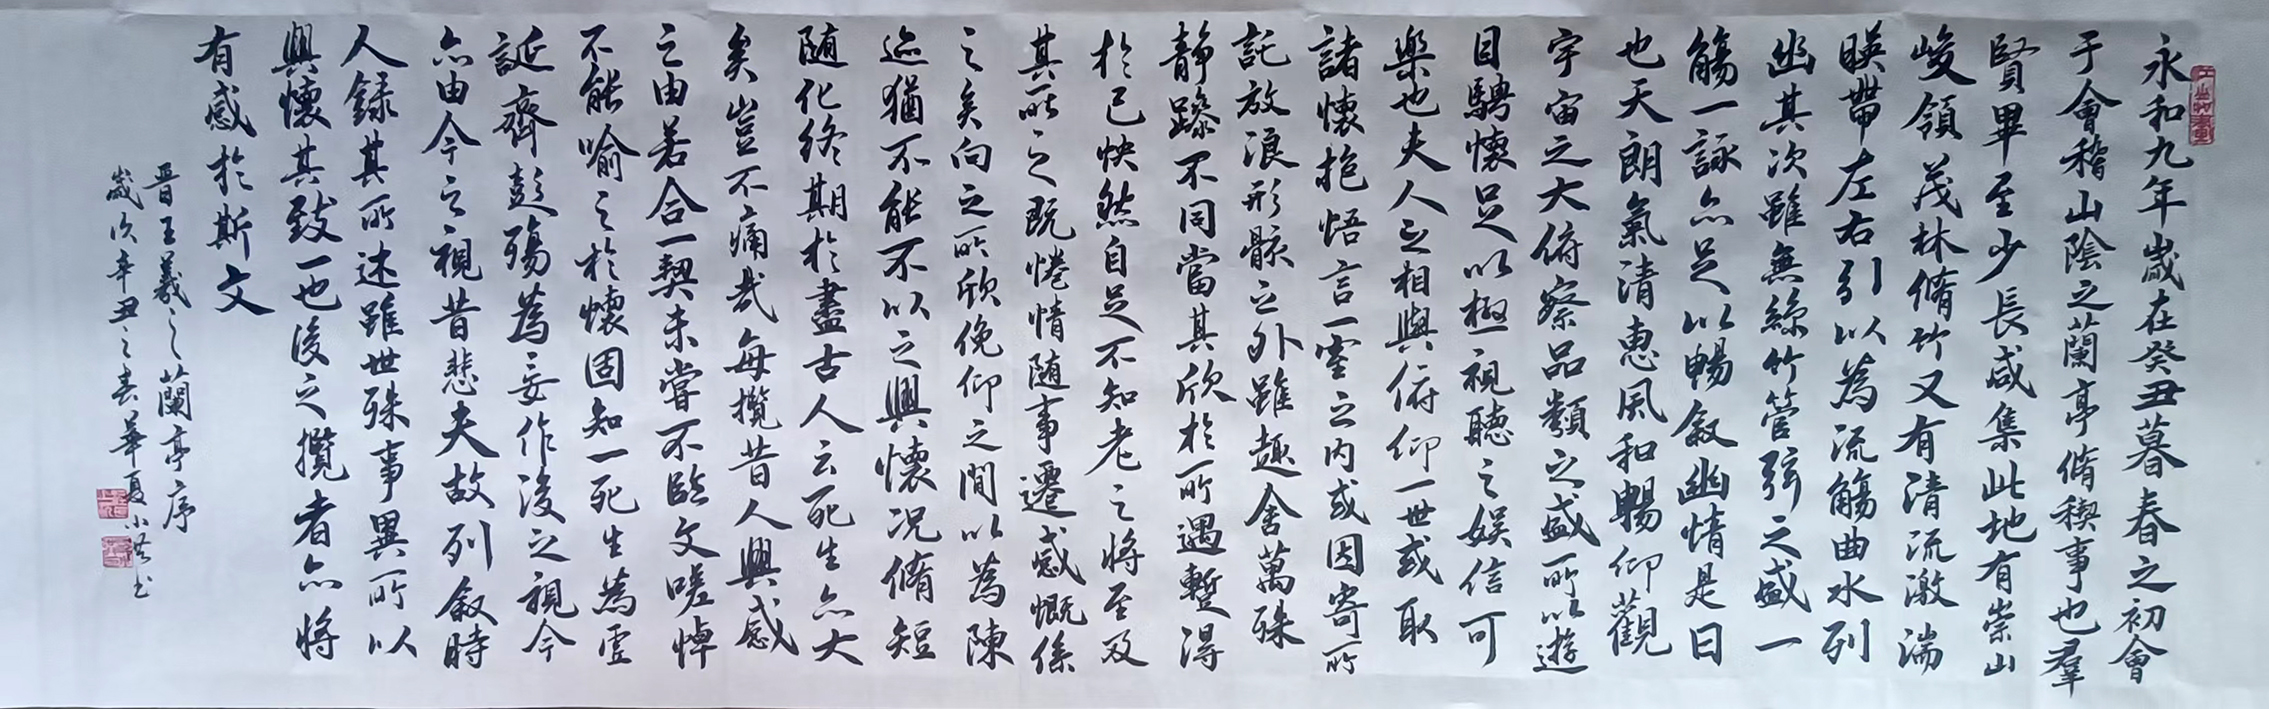 永和九年歲在癸丑暮春之初會
于會稽山陰之蘭亭脩稧事也羣
賢畢至少長咸集此地有崇山
峻領茂林脩竹又有清流激湍
暎帶左右引以為流觴曲水列
幽其次雖無絲竹管弦之盛一
觴一詠亦足以暢敘幽情是日
也天朗氣清惠風和暢仰觀
宇宙之大俯察品類之盛所以遊
目騁懷足以極視聽之娛信可
樂也夫人之相與俯仰一世或取
諸懷抱悟言一室之內或因寄所
託放浪形骸之外雖趣舍萬殊
靜躁不同當其欣於所遇蹔得
於己怏然自足不知老之將至及
其所之既惓情隨事遷感慨係
之矣向之所欣俛仰之間以為陳
迹猶不能不以之興懷況脩短
隨化終期於盡古人云死生亦大
矣豈不痛哉每攬昔人興感
之由若合一契未嘗不臨文嗟悼
不能喻之於懷固知一死生為虛
誕齊彭殤為妄作後之視今
亦由今之視昔悲夫故列敘時
人錄其所述雖世殊事異所以
興懷其致一也後之攬者亦將
有感於斯文
晉王羲之蘭亭序
歲次辛丑之春華夏小書